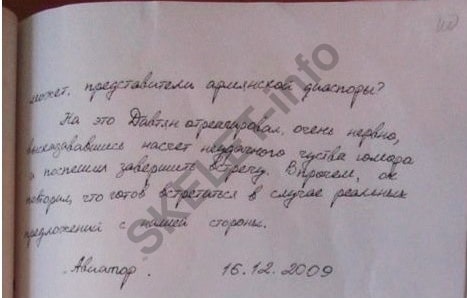 может, представители армянской диаспоры?
На это Давтян отреагировал очень нервно,
высказававшись насчет неудачного чуства юмора
и поспешил завершить встречу. Впрочем, он
повторил, что готов встретиться в случае реальных
предложений с нашей стороны.
"Авиатор". 16.12.2009
SKELET-info